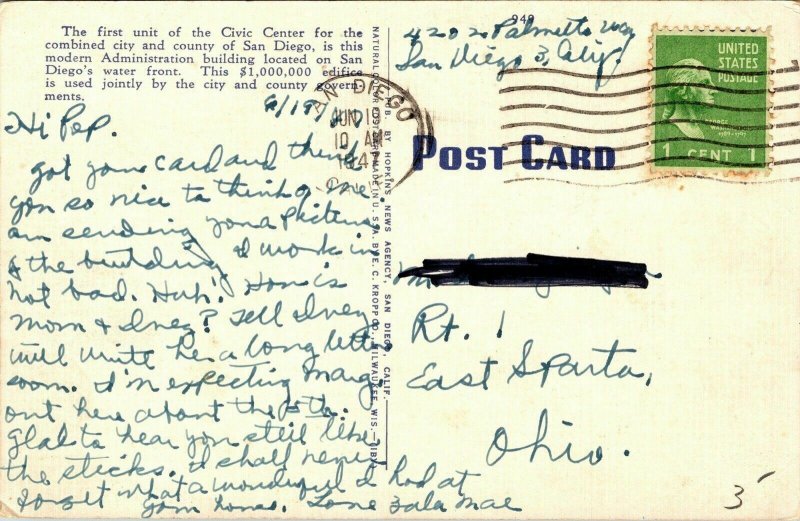 The first unit of the Civic Center for the
combined city and county of San Diego, is this
modern Administration building located on San
Diego's water front. This $1,000,000 edifice
is used jointly by the city and county govern-
ments.
Hi Pep.
got your card and think
you so nice to think of me.
am sending you a picture
of the building I work in
not bad. Huh! How is
Mom & Inez? Tell Inez
will write her a long letter
soon. I'm expecting Marg.
out here about the 15th.
glad to hear you still like
the sticks. I shall never
forget what a wonderful I had at
your home. Love Zala Mae
NATURAL COLOR POST CARD MADE IN U. S. A. BY E. C. KROPP CO., MILWAUKEE, WIS.
PUB. BY HOPKINS NEWS AGENCY, SAN DIEGO, CALIF.
949
4202 Palmetto Way
San Diego 3, Calif.
SAN DIEGO
JUN 19
10 AM
UNITED
STATES
POSTAGE
GEORGE
WASHINGTON
1 CENT 1
POST CARD
Rt. 1
East Sparta,
Ohio.
3